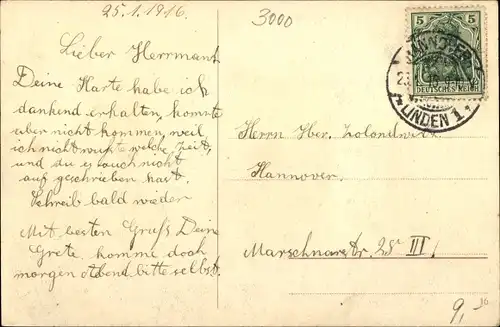 25.1.1916.
3000
Lieber Herrmann!
Deine Karte habe ich
dankend erhalten, konnte
aber nicht kommen, weil
ich nicht wußte welche Zeit,
und du es auch nicht
auf geschrieben hast.
Schreib bald wieder
Mit besten Gruß Deine
Grete, komme doch
morgen Abend bitte selbst.
5 5
DEUTSCHES REICH
HANNOVER
LINDEN 1
Herrn Her.
Hannover.
Marschnerstr. 25 III
9,-